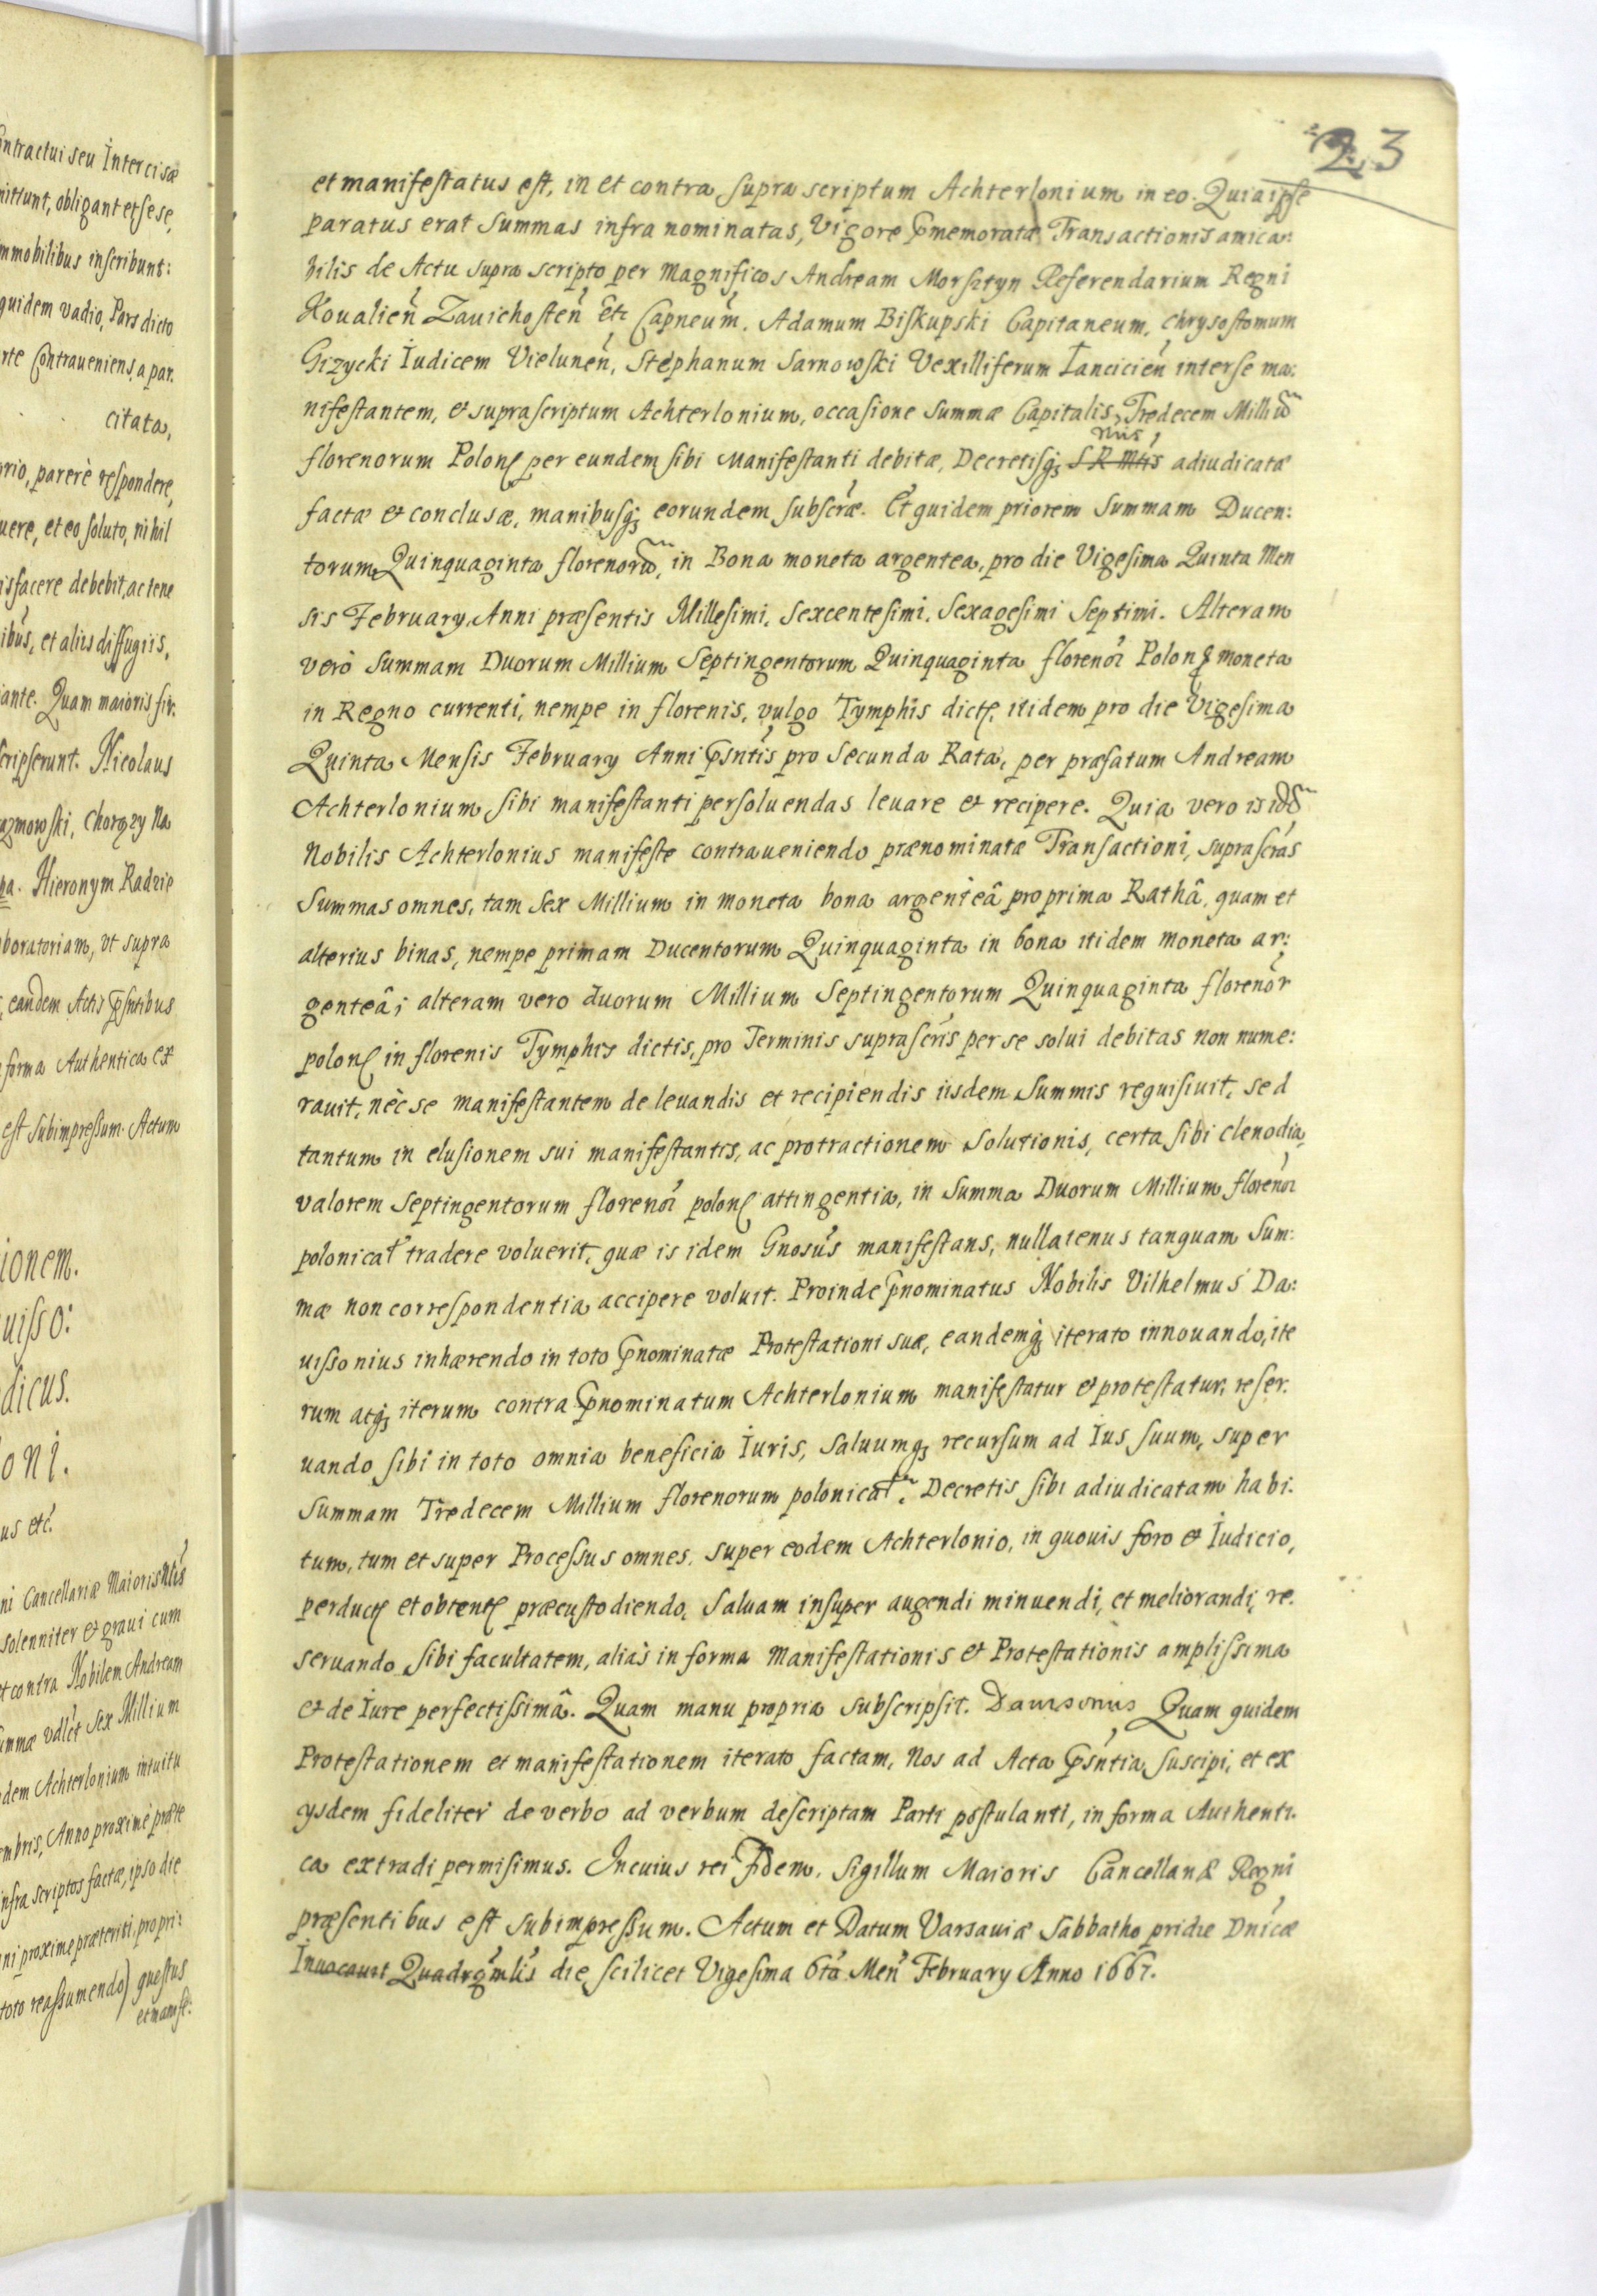 ontractui seu Intercisæ
mittunt, obligant et sese,
mmobilibus inscribunt:
quidem vadio, Pars dicto
rte Contraueniens, a par.
citata,
orio, parerè respondere,
uere, et eo soluto, nihil
isfacere debebit, ac tene
ibus, et alijs diffugijs,
iante. Quam maioris fir:
scripserunt. Nicolaus
azmowski, Chorąży Na
ha. Hieronym Radzie
boratoriam, vt supra
, eandem Actis pſntibus
forma Authentica ex
est subimpressum. Actum
ionem.
uisso:
dicus.
oni.
us etc.
ni Cancellariæ Maioris
solenniter et graui cum
et contra Nobilem Andream
ummæ Sex Millium
dem Achterlonium intuitu
mbris, Anno proximè
infra scriptos factæ, ipso die
ni proxime præteriti, propri:
toto reassumendo) questus
et manife:
23
et manifestatus est, in et contra supra scriptum Achterlonium in eo. Quia ipse
paratus erat summas infra nominatas, Vigore p̄memoratæ Transactionis amica:
bilis de Actu supra scripto per Magnificos Andream Morsztyn Referendarium Regni
Koualień Zauichosteń Etc Capneum̃. Adamum Biskupski Capitaneum, Chrysostomum
Gizycki Iudicem Vieluneń, Stephanum Sarnowski Vexilliferum Lancicień inter se ma:
nifestantem, et suprascriptum Achterlonium, occasione summæ Capitalis, Tredecem Milliũ
florenorum Polon̄ per eundem sibi Manifestanti debitæ, Decretisq; S R Mtis adiudicatæ
factæ et conclusæ, manibusq; eorundem subscr̃æ. Et quidem priorem summam Ducen:
torum Quinquaginta florenorũ, in Bona moneta argentea, pro die Vigesima Quinta Men
sis February, Anni præsentis Millesimi, Sexcentesimi, Sexagesimi Septimi. Alteram
verò summam Duorum Millium Septingentorum Quinquaginta florenor̃ Polon̄ moneta
in Regno currenti, nempe in florenis, vulgo Tymphis dict̄, itidem pro die Vigesima
Quinta Mensis February Anni p̄sntis pro Secunda Rata, per præfatum Andream
Achterlonium, sibi manifestanti persoluendas leuare et recipere. Quia vero is idẽ
Nobilis Achterlonius manifeste contraueniendo prænominatæ Transactioni, suprascr̃as
summas omnes, tam Sex Millium in moneta bona argenteâ pro prima Rathâ, quam et
alterius binas, nempe primam Ducentorum Quinquaginta in bona itidem moneta ar:
genteâ; alteram vero duorum Millium Septingentorum Quinquaginta florenor̃
polon̄ in florenis Tymphis dictis, pro Terminis suprascr̃is per se solui debitas non nume:
rauit, nèc se manifestantem de leuandis et recipiendis iisdem Summis requisiuit, sed
tantum in elusionem sui manifestantis, ac protractionem solutionis, certa sibi clenodia,
valorem Septingentorum florenor̃ polon̄ attingentia, in Summa Duorum Millium florenor̃
polonicał tradere voluerit, quæ is idem Gnosus̃ manifestans, nullatenus tanquam Sum:
mæ non correspondentia accipere voluit. Proinde p̄nominatus Nobilis Vilhelmus Da:
uissonius inhærendo in toto p̄nominatæ Protestationi suæ, eandemq; iterato innouando, ite
rum atq; iterum contra p̄nominatum Achterlonium manifestatur et protestatur, reser:
uando sibi in toto omnia beneficia Iuris, saluumq; recursum ad Ius suum, super
summam Tredecem Millium florenorum polonicał. Decretis sibi adiudicatam habi:
tum, tum et super Processus omnes, super eodem Achterlonio, in quouis foro et Iudicio,
perduct̄ et obtent̄ præcustodiendo, saluam insuper augendi minuendi, et meliorandi, re:
seruando sibi facultatem, alias in forma Manifestationis et Protestationis amplissima
et de Iure perfectissimâ. Quam manu propria subscripsit. Dauissonius Quam quidem
Protestationem et manifestationem iterato factam, Nos ad Acta p̄sntia suscipi, et ex
ysdem fideliter de verbo ad verbum descriptam Parti postulanti, in forma Authenti:
ca extradi permisimus. In cuius rei Fidem, Sigillum Maioris Cancellariæ Regni
præsentibus est subimpressum. Actum et Datum Varsauiæ Sabbatho pridie Dnicæ
Inuocauit Quadrgmlis die scilicet Vigesima 6ta Meñ February Anno 1667.